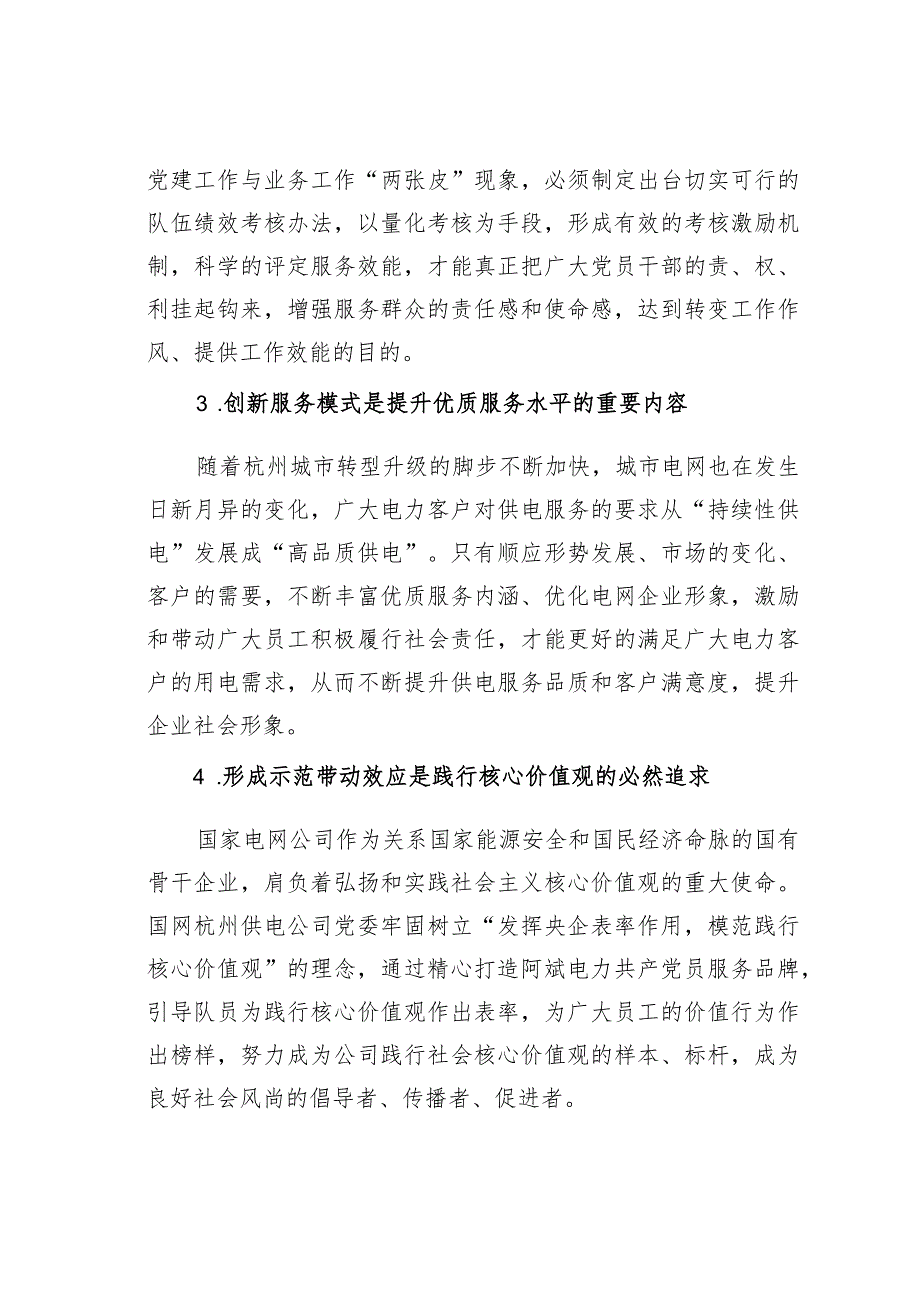 党建工作与业务工作“两张皮”现象，必须制定出台切实可行的
队伍绩效考核办法，以量化考核为手段，形成有效的考核激励机
制，科学的评定服务效能，才能真正把广大党员干部的责、权、
利挂起钩来，增强服务群众的责任感和使命感，达到转变工作作
风、提供工作效能的目的。
3 .创新服务模式是提升优质服务水平的重要内容
随着杭州城市转型升级的脚步不断加快，城市电网也在发生
日新月异的变化，广大电力客户对供电服务的要求从“持续性供
电”发展成“高品质供电”。只有顺应形势发展、市场的变化、
客户的需要，不断丰富优质服务内涵、优化电网企业形象，激励
和带动广大员工积极履行社会责任，才能更好的满足广大电力客
户的用电需求，从而不断提升供电服务品质和客户满意度，提升
企业社会形象。
4 .形成示范带动效应是践行核心价值观的必然追求
国家电网公司作为关系国家能源安全和国民经济命脉的国有
骨干企业，肩负着弘扬和实践社会主义核心价值观的重大使命。
国网杭州供电公司党委牢固树立“发挥央企表率作用，模范践行
核心价值观”的理念，通过精心打造阿斌电力共产党员服务品牌，
引导队员为践行核心价值观作出表率，为广大员工的价值行为作
出榜样，努力成为公司践行社会核心价值观的样本、标杆，成为
良好社会风尚的倡导者、传播者、促进者。